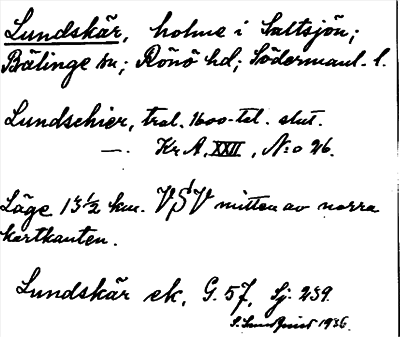 Lundskär, holme i Saltsjön;
Bälinge sn; Rönö hd; Södermanl. l.
Lundschier, trol. 1600-tal. slut.
—. Kr A, XXII, N:o 26.
Läge 13 1/2 km. VSV mitten av norra
kartkanten.
Lundskär ek. G. 57, Sj. 239.
1936.